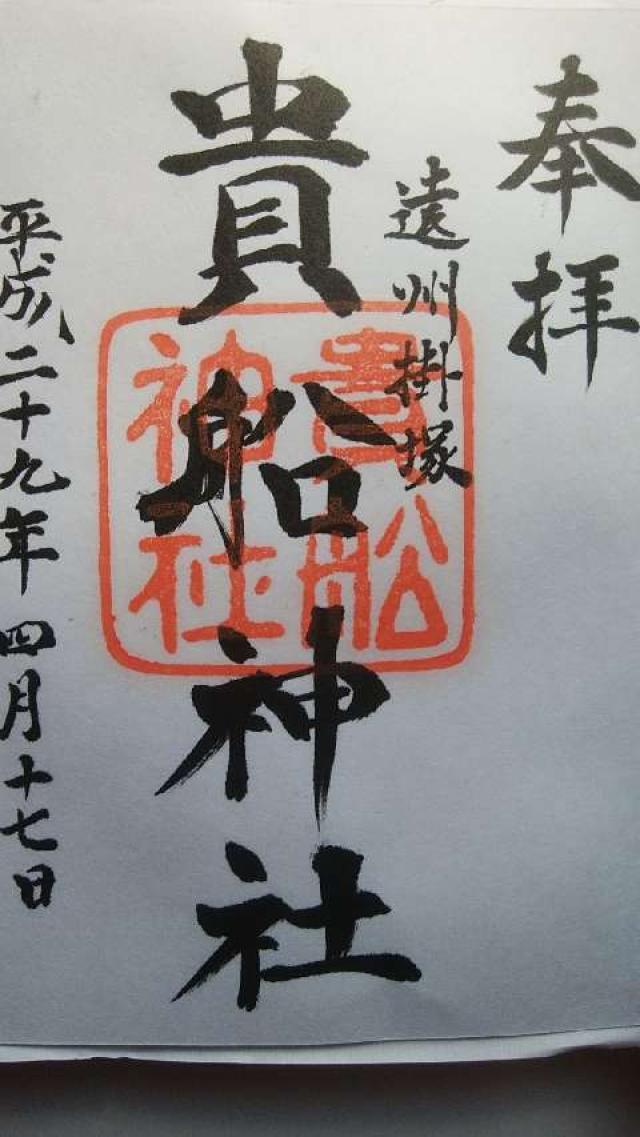 奉拝
遠州掛塚
貴船神社
貴船
神社
平成二十九年四月十七日